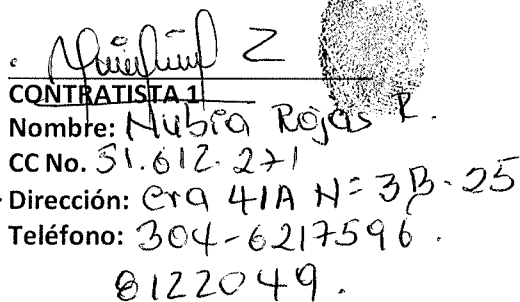 CONTRATISTA 1
Nombre: Nubia Rojas R.
CC No. 51.612.271
Dirección: Cra 41A N= 3B-25
Teléfono: 304-6217596.
8122049.